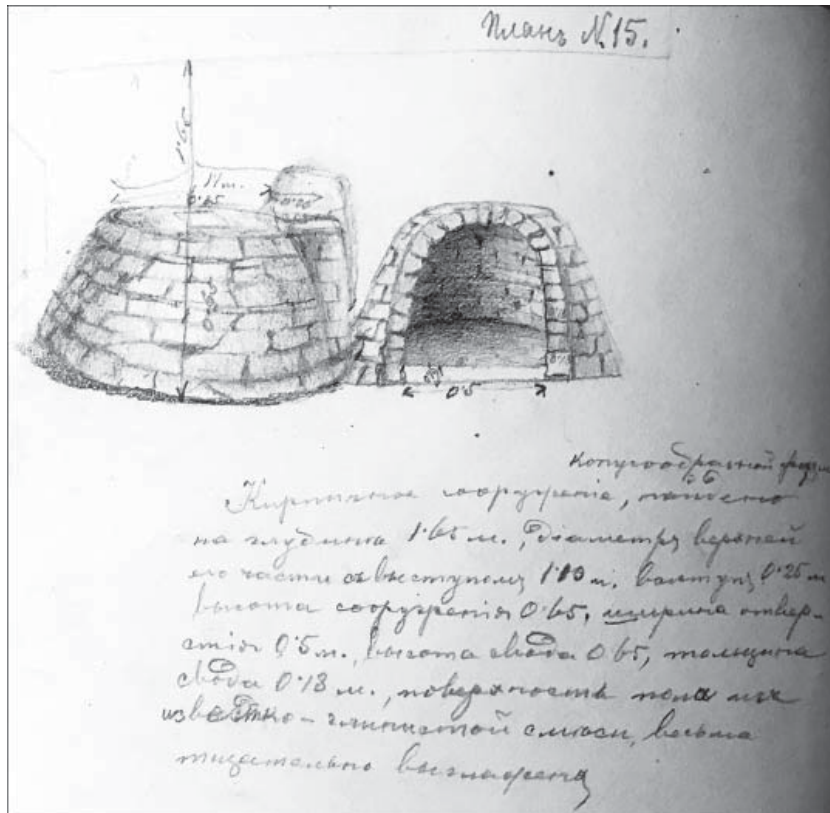 Планъ №15.
1·65
0·65
0·65
0·5
конусообразной формы
Кирпичное сооруженіе, найдено
на глубинѣ 1·65 м., діаметръ верхней
его части съ выступомъ 1·10 м. выступъ 0·25 м
высота сооруженія 0·65, ширина отвер-
стія 0·5 м., высота свода 0·65, толщина
свода 0·13 м., поверхность пола изъ
известко-глинистой смѣси, весьма
тщательно выглажена